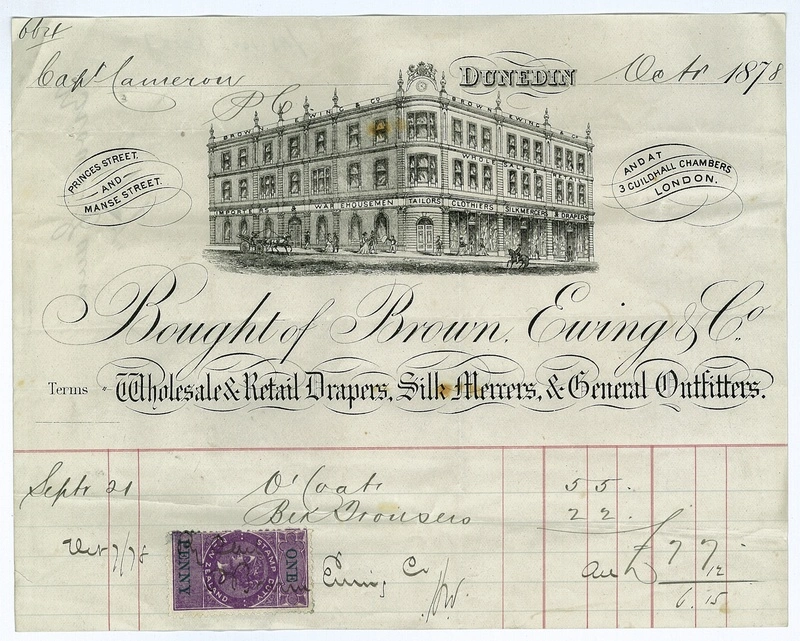 664
Capt Cameron
P C
DUNEDIN
Octr 1878
PRINCES STREET.
AND
MANSE STREET.
BROWN EWING & CO
BROWN EWING & CO
WHOLESALE
IMPORTERS & WAREHOUSEMEN
TAILORS
CLOTHIERS
SILKMERCERS & DRAPERS
AND AT
3 GUILDHALL CHAMBERS
LONDON.
Bought of Brown, Ewing & Co.
Terms
Wholesale & Retail Drapers, Silk Mercers, & General Outfitters.
Septr 21 O'Coat 55.
Trousers 22.
Oct 7/78
77
12
6.15
ONE
PENNY
STAMP DUTY
NEW ZEALAND
Ewing Co